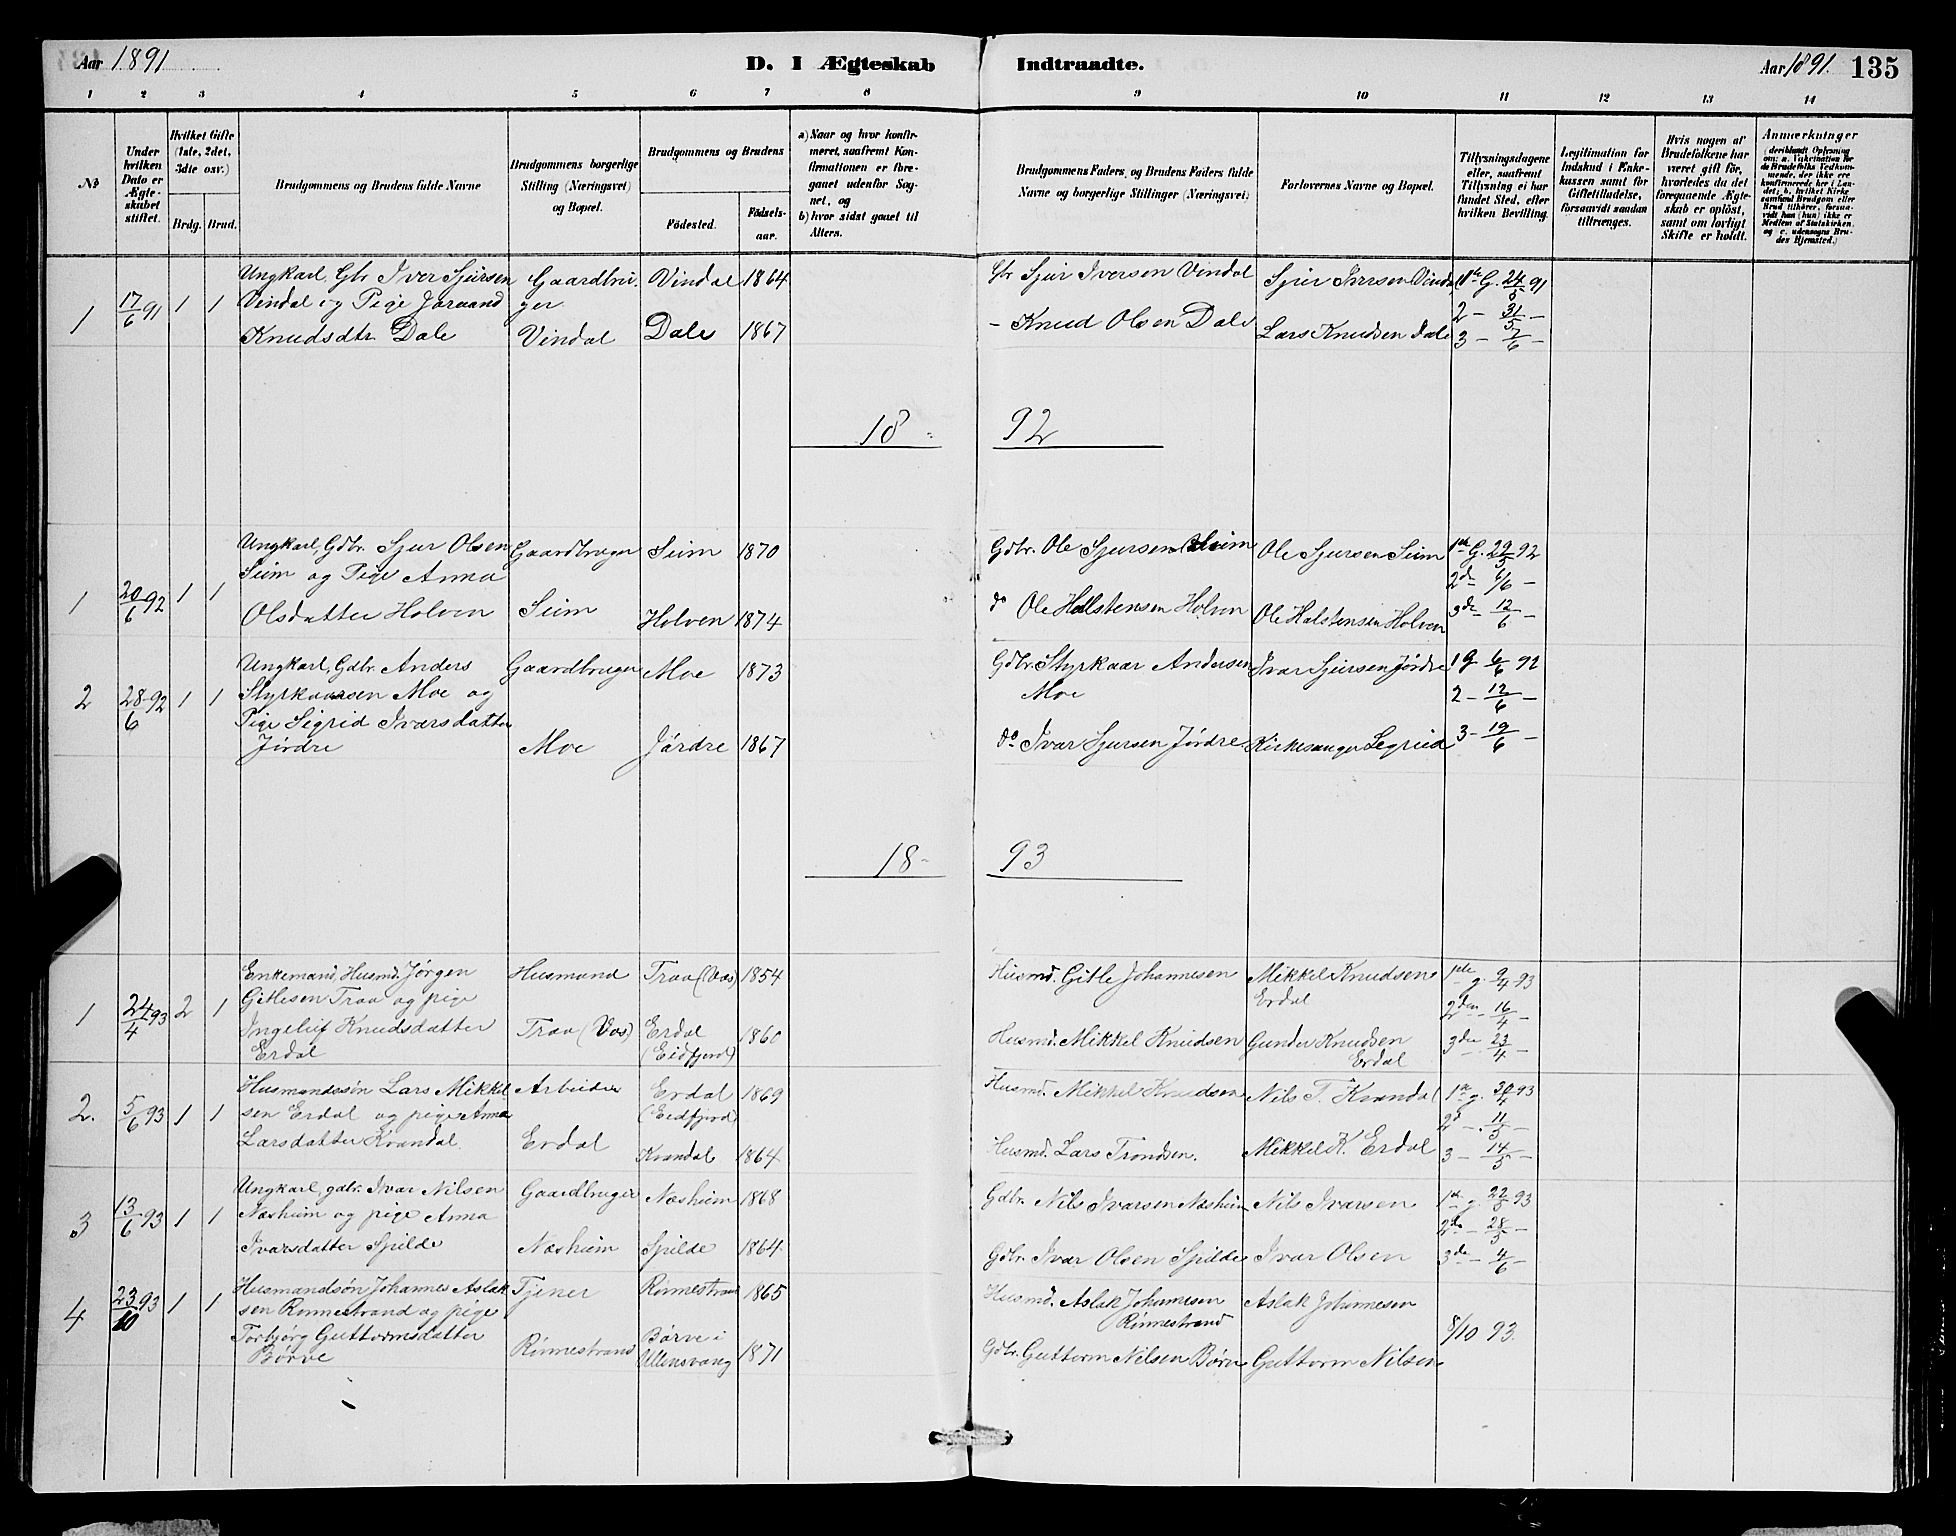 Aar 1891
D. I Ægteskab
Indtraadte.
Aar 1891. 135
1 2 3 4 5 6 7 8 9 10 11 12 13 14
No
Under hvilken Dato er Ægteskabet stiftet.
Hvilket Gifte (1ste, 2det, 3die osv.)
Brdg. Brud.
Brudgommens og Brudens fulde Navne
Brudgommens borgerlige Stilling (Næringsvei) og Bopæl.
Brudgommens og Brudens
Fødested.
Fødsels-aar.
a) Naar og hvor konfirmeret, saafremt Konfirmationen er foregaaet udenfor Sognet, og
b) hvor sidst gaaet til Alters.
Brudgommens Faders og Brudens Faders fulde Navne og borgerlige Stillinger (Næringsvei)
Forlovernes Navne og Bopæl.
Tillysningsdagene eller, saafremt Tillysning ei har fundet Sted, efter hvilken Bevilling.
Legitimation for Indskud i Enkekassen samt for Giftetilladelse, forsaavidt saadan tiltrænges.
Hvis nogen af Brudefolkene har været gift før, hvorledes da det foregaaende Ægteskab er opløst, samt om lovligt Skifte er holdt.
Anmærkninger
(deriblandt Oplysning om: a. Vakcination for de Brudefolks Vedkommende, der ikke ere konfirmerede her i Landet, b. hvilket Kirkesamfund Brudgom eller Brud tilhører, forsaavidt han (hun) ikke er Medlem af Statskirken, og c. udensogns Brudes Hjemsted.)
1 17/6 91 1 1
Ungkarl Gbr Iver Sjursen
Vindal og Pige Joraand
Knudsdtr Dale
Gaardbruger
Vindal
Vindal 1864
Dale 1867
Gbr Sjur Iversen Vindal
- Knud Olsen Dale
Sjur Iversen Vindal
Lars Knudsen Dale
1ste G. 24/5 91
2 - 31/5 -
3 - 7/6 -
18 92
1 20/6 92 1 1
Ungkarl, Gdbr. Sjur Olsen
Seim og Pige Anna
Olsdatter Holven
Gaardbruger
Seim
Seim 1870
Holven 1874
Gdbr. Ole Sjursen Seim
do Ole Halstensen Holven
Ole Sjursen Seim
Ole Halstensen Holven
1ste G. 29/5 92
2de 6/6 -
3de - 12/6 -
2 28/6 92 1 1
Ungkarl, Gdbr. Anders
Styrkaarsen Moe og
Pige Sigrid Ivarsdatter
Jørdre
Gaardbruger
Moe
Moe 1873
Jørdre 1867
Gdbr. Styrkaar Andersen
Moe
do Ivar Sjursen Jørdre
Ivar Sjursen Jørdre
Kirkesanger Legried
1 g 6/6 92
2 - 12/6 -
3 - 19/6 -
18 - 93
1 24/4 93 2 1
Enkemand, Husmd. Jørgen
Gitlesen Traa og pige
Ingelif Knudsdatter
Erdal
Husmand
Traa (Vos)
Traa (Vos) 1854
Erdal
(Eidfjord) 1860
Husmd. Gitle Johannesen
Husmd. Mikkel Knudsen
Mikkel Knudsen
Erdal
Gunder Knudsen
Erdal
1ste g. 9/4 93
2den - 16/4 -
3die - 23/4 -
2. 5/6 93 1 1
Husmandssøn Lars Mikkel
sen Erdal og pige Anna
Larsdatter Kvandal
Arbeider
Erdal
Erdal 1869
(Eidfjord)
Kvandal 1864
Husmd. Mikkel Knudsen
Husmd. Lars Trondsen.
Nils T. Kvandal
Mikkel K. Erdal
1ste g. 30/4 93
2d - 11/5 -
3 - 14/5 -
3 13/6 93 1 1
Ungkarl, gdbr. Ivar Nilsen
Næsheim og pige Anna
Ivarsdatter Spilde
Gaardbruger
Næsheim
Næsheim 1868
Spilde 1864
Gdbr. Nils Ivarsen Næsheim
Gdbr. Ivar Olsen Spilde
Nils Ivarsen
Ivar Olsen
1ste g. 22/5 93
2de - 28/5 -
3de - 4/6 -
4 23/10 93 1 1
Husmandsøn Johannes Aslak
sen Rinnestrand og pige
Torbjørg Guttormsdatter
Børve
Tjener
Rinnestrand
Rinnestran 1865
Børve i
Ullensvang 1871
Husmd. Aslak Johannesen
Rinnestrand
Gdbr. Guttorm Nilsen Børve
Aslak Johannesen
Guttorm Nilsen
8/10 93.